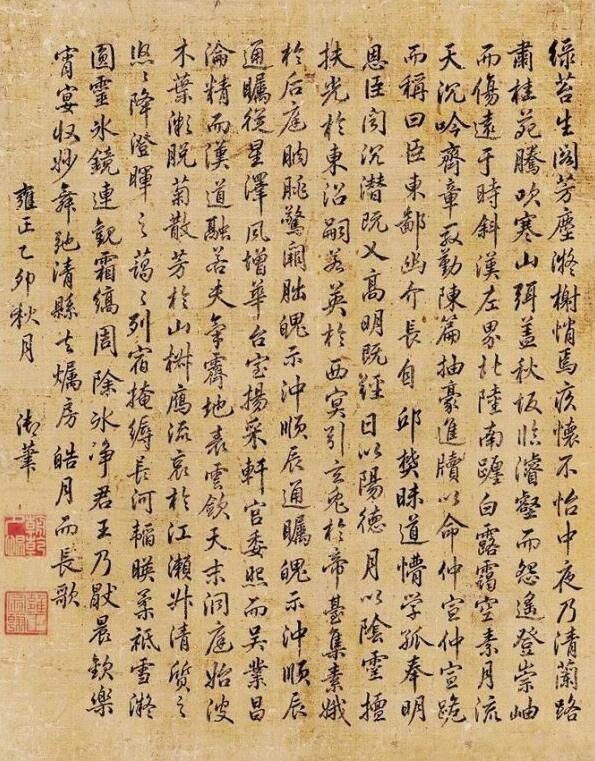 綠苔生閣芳塵凝榭悄焉疚懷不怡中夜乃清蘭路
肅桂苑騰吹寒山弭蓋秋坂臨濬壑而怨遙登崇岫
而傷遠于時斜漢左界北陸南躔白露靄空素月流
天沉吟齊章殷勤陳篇抽豪進牘以命仲宣仲宣跪
而稱曰臣東鄙幽介長自邱樊昧道懵學孤奉明
恩臣聞沉潛既义高明既經日以陽德月以陰靈擅
扶光於東沼嗣若英於西冥引玄兔於帝臺集素娥
於后庭朒朓驚闕朏魄示沖順辰通矚魄示沖順辰
通矚從星澤風增華台室揚采軒宮委照而吳業昌
淪精而漢道融若夫氣霽地表雲斂天末洞庭始波
木葉漸脫菊散芳於山椒雁流哀於江瀨升清質之
悠〻降澄暉之藹〻列宿掩縟長河韜映柔祇雪凝
圓靈水鏡連觀霜縞周除冰凈君王乃厭晨歡樂
宵宴收妙舞弛清縣去燭房皓月而長歌
雍正乙卯秋月 御筆